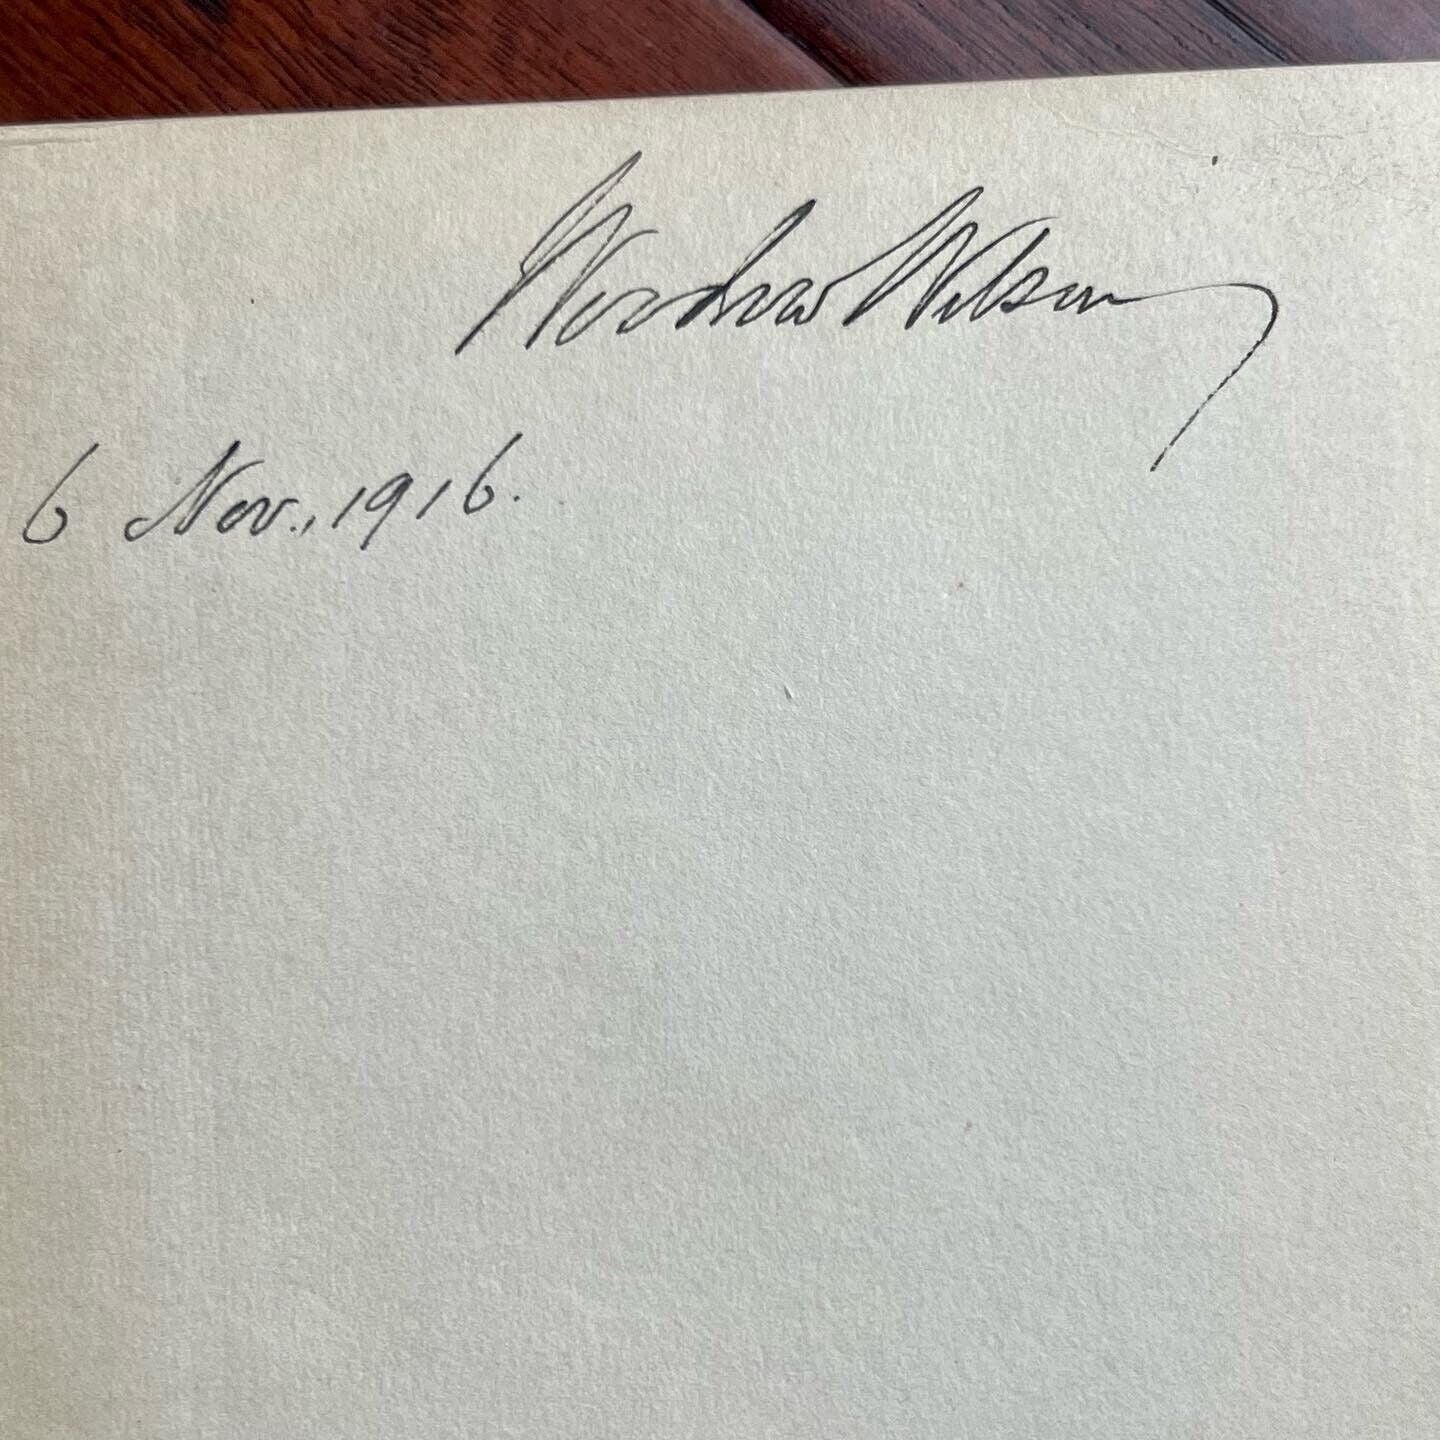 Woodrow Wilson
6 Nov., 1916.